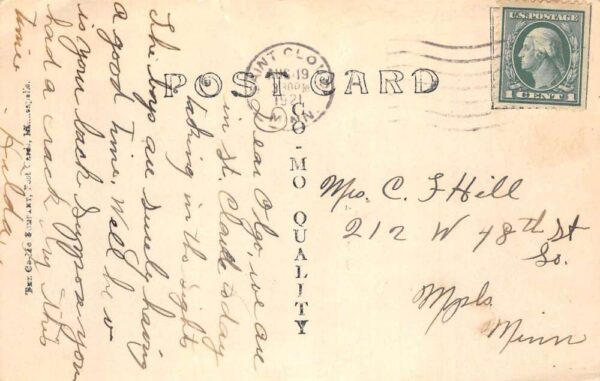 POST CARD
SAINT CLOUD
AUG 19
1921
MINN
U.S. POSTAGE
1 CENT 1
CO-MO QUALITY
Dear Olga, we are
in St. Cloud today
taking in the sights
The boys are surely having
a good time. Well
is your back suppose you
had a crack by this
time.
Hulda
Mrs. C. F Hill
212 W 48th St
So.
Mpls
Minn
THE CO-MO COMPANY, Post Cards, Minneapolis.